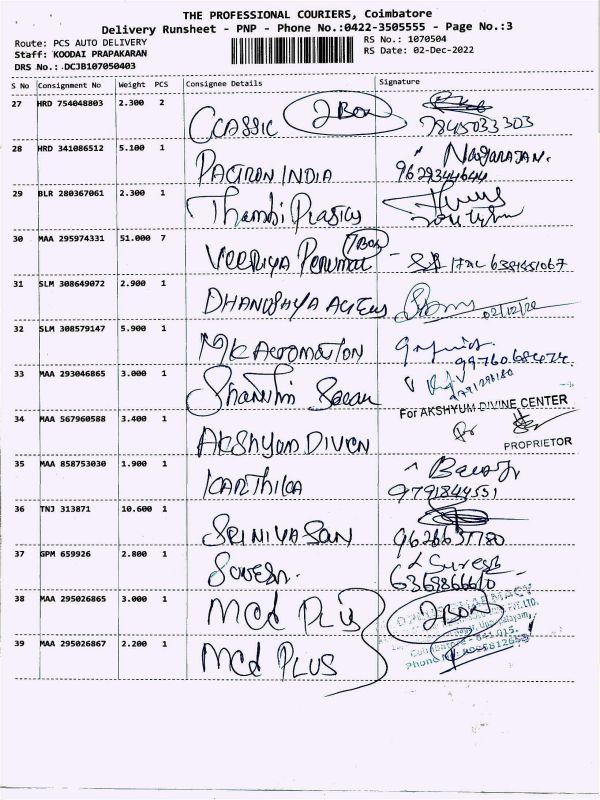 THE PROFESSIONAL COURIERS, Coimbatore
Delivery Runsheet - PNP - Phone No.:0422-3505555 - Page No.:3
Route: PCS AUTO DELIVERY
RS No.: 1070504
Staff: KOODAI PRAPAKARAN
RS Date: 02-Dec-2022
DRS No.: DCJB107050403
S No Consignment No Weight PCS Consignee Details Signature
27 HRD 754048803 2.300 2 CLASSIC 2 Box
7845033303
28 HRD 341086512 5.100 1 PAGRON INDIA Nagarajan.
29 BLR 280367061 2.300 1 Thambi
30 MAA 295974331 51.000 7 VEERIYA Perumal 7 Box
31 SLM 308649072 2.900 1 DHANUSHYA 02/12/20
32 SLM 308579147 5.900 1 MK AUTOMATION
33 MAA 293046865 3.000 1 Shanthi
For AKSHYUM DIVINE CENTER
34 MAA 567960588 3.400 1 AKSHYUM DIVEN
PROPRIETOR
35 MAA 858753030 1.900 1 KARTHIKA
9791844551
36 TNJ 313871 10.600 1 SRINIVASAN
37 GPM 659926 2.800 1 Suresh. Suresh
38 MAA 295026865 3.000 1 Med PLUS 2 Box
39 MAA 295026867 2.200 1 Med PLUS